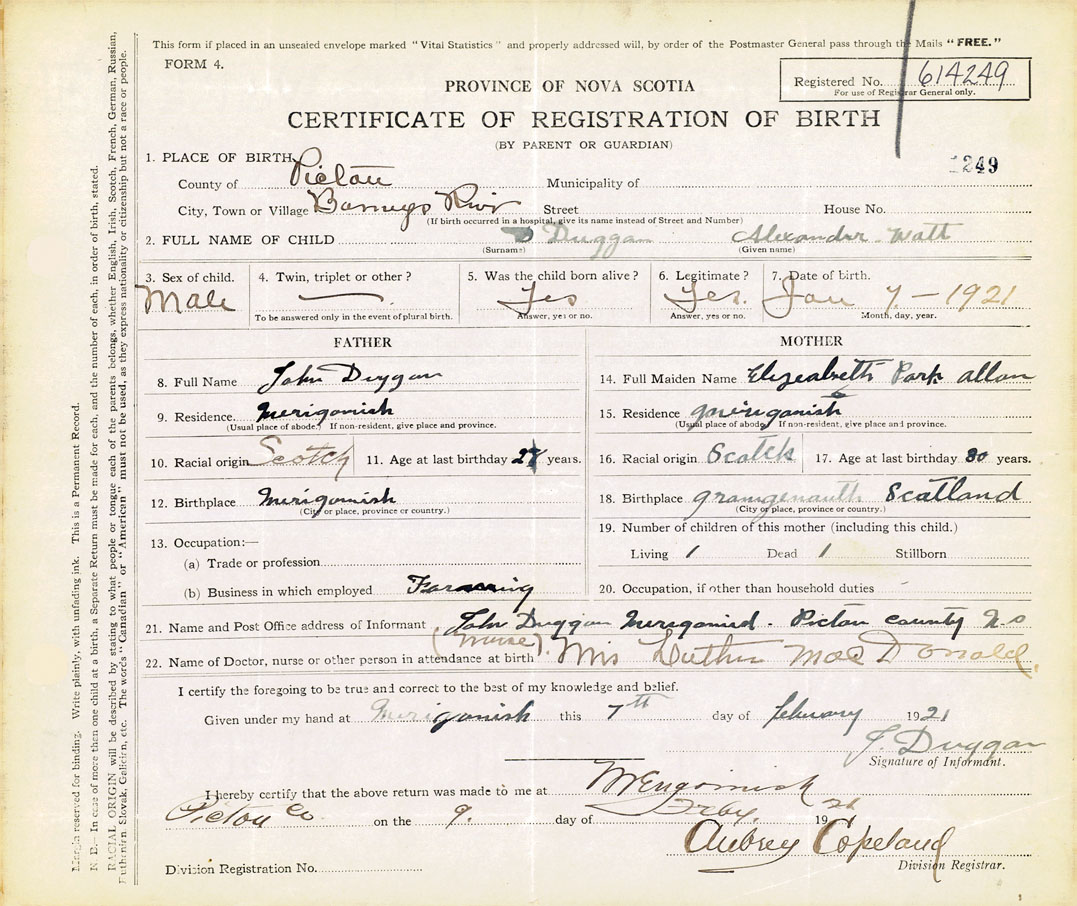 This form if placed in an unsealed envelope marked "Vital Statistics" and properly addressed will, by order of the Postmaster General pass through the Mails "FREE."
FORM 4.
Registered No. 614249
For use of Registrar General only.
PROVINCE OF NOVA SCOTIA
CERTIFICATE OF REGISTRATION OF BIRTH
(BY PARENT OR GUARDIAN)
1249
1. PLACE OF BIRTH
County of Pictou Municipality of
City, Town or Village Barneys River Street House No.
(If birth occurred in a hospital, give its name instead of Street and Number)
2. FULL NAME OF CHILD Duggan Alexander Watt
(Surname) (Given name)
3. Sex of child. 4. Twin, triplet or other? 5. Was the child born alive? 6. Legitimate? 7. Date of birth.
Male — Yes Yes. Jan 7 - 1921
To be answered only in the event of plural birth. Answer, yes or no. Answer, yes or no. Month, day, year.
FATHER
8. Full Name John Duggan
9. Residence. Merigomish
(Usual place of abode. If non-resident, give place and province.
10. Racial origin Scotch 11. Age at last birthday years.
12. Birthplace Merigomish
(City or place, province or country.)
13. Occupation:—
(a) Trade or profession
(b) Business in which employed Farming
MOTHER
14. Full Maiden Name Elizeabeth Park allan
15. Residence Merigomish
(Usual place of abode. If non-resident, give place and province.
16. Racial origin Scotch 17. Age at last birthday 30 years.
18. Birthplace Scatland
(City or place, province or country.)
19. Number of children of this mother (including this child.)
Living 1 Dead 1 Stillborn
20. Occupation, if other than household duties
21. Name and Post Office address of Informant John Duggan Merigomish. Pictou county N.S
(nurse).
22. Name of Doctor, nurse or other person in attendance at birth Mrs Luther MacDonald.
I certify the foregoing to be true and correct to the best of my knowledge and belief.
Given under my hand at Merigomish this 7th day of february 1921
J. Duggan
Signature of Informant.
I hereby certify that the above return was made to me at Merigomish
Pictou Co on the 9. day of Feby. 1921
Aubrey Copeland
Division Registrar.
Division Registration No.
Margin reserved for binding. Write plainly, with unfading ink. This is a Permanent Record.
N. B.—In case of more than one child at a birth, a Separate Return must be made for each, and the number of each, in order of birth, stated.
RACIAL ORIGIN will be described by stating to what people or tongue each of the parents belongs, whether English, Irish, Scotch, French, German, Russian,
Ruthenian, Slovak, Galician, etc. The words "Canadian" or "American" must not be used, as they express nationality or citizenship but not a race or people.